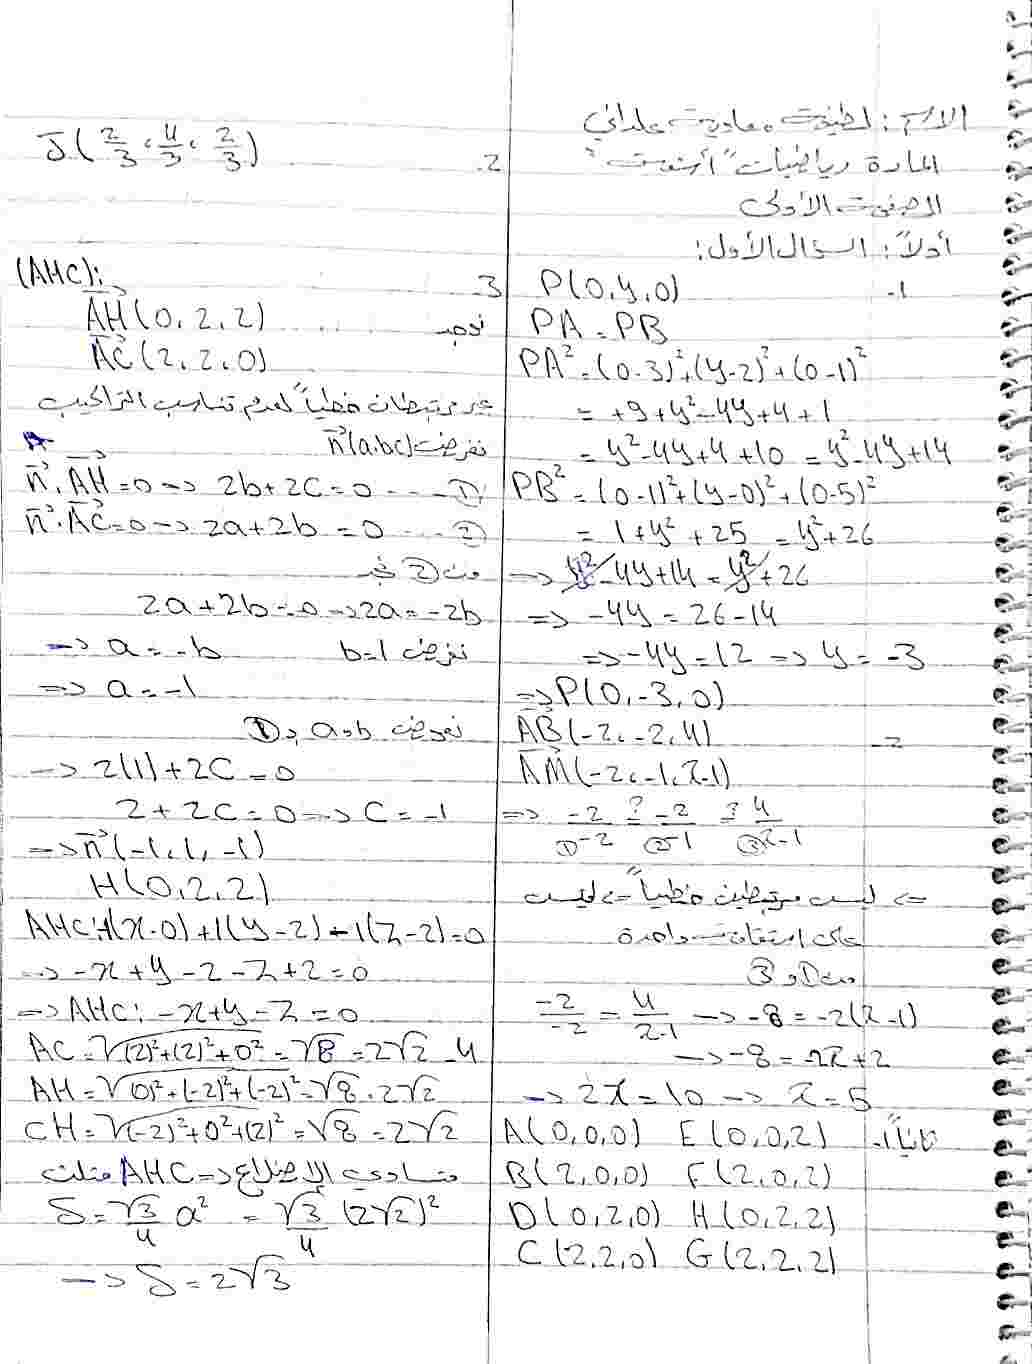 الاسم: لطيفة معاوية علداني
المادة رياضيات "أتمتة"
الصفحة الأولى
أولاً: السؤال الأول:
1- P(0,y,0)
PA = PB
PA² = (0-3)² + (y-2)² + (0-1)²
= +9+y²-4y+4+1
= y²-4y+4+10 = y²-4y+14
PB² = (0-1)²+(y-0)²+(0-5)²
= 1+y²+25 = y²+26
=> y²-4y+14 = y²+26
=> -4y = 26-14
=> -4y = 12 => y = -3
=> P(0,-3,0)
2- AB(-2,-2,4)
AM(-2,-1,z-1)
=> -2/-2 ① ?= -2/-1 ② ?= 4/z-1 ③
=> ليست مرتبطين خطياً => ليست
على استقامة واحدة
من ① و ③
-2/-2 = 4/z-1 -> -8 = -2(z-1)
-> -8 = -2z+2
-> 2z = 10 -> z = 5
ثانياً 1. A(0,0,0) E(0,0,2)
B(2,0,0) F(2,0,2)
D(0,2,0) H(0,2,2)
C(2,2,0) G(2,2,2)
2. J(2/3, 4/3, 2/3)
3. (AHC):
نوجد AH(0,2,2)
AC(2,2,0)
غير مرتبطان خطياً لعدم تناسب التراكيب
نفرض n(a,b,c)
n·AH=0 -> 2b+2c=0 ---- ①
n·AC=0 -> 2a+2b=0 ---- ②
من ② نجد
2a+2b=0 -> 2a=-2b
-> a=-b نفرض b=1
=> a=-1
نعوض a,b في ①
-> 2(1)+2c=0
2+2c=0 -> c=-1
-> n(-1,1,-1)
H(0,2,2)
AHC:-1(x-0)+1(y-2)-1(z-2)=0
-> -x+y-2-z+2=0
-> AHC: -x+y-z=0
4- AC=√(2)²+(2)²+0²=√8=2√2
AH=√(0)²+(-2)²+(-2)²=√8=2√2
CH=√(-2)²+0²+(2)²=√8=2√2
مثلث AHC <= متساوي الاضلاع
S=√3/4 a² = √3/4 (2√2)²
-> S=2√3